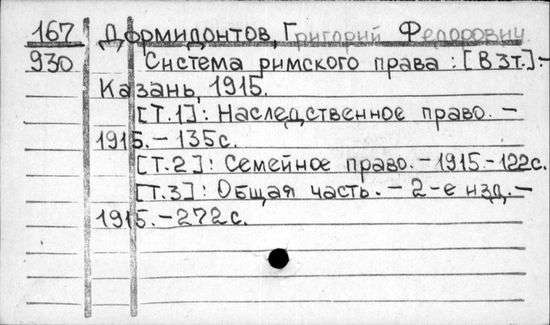 167 Дормидонтов, Григорий Федорович
930 Система римского права : [В 3т.]-
Казань, 1915.
[Т.1]: Наследственное право. -
1915. - 135с.
[Т.2]: Семейное право. - 1915. - 122с.
[Т.3]: Общая часть. - 2-е изд. -
1915. - 272с.